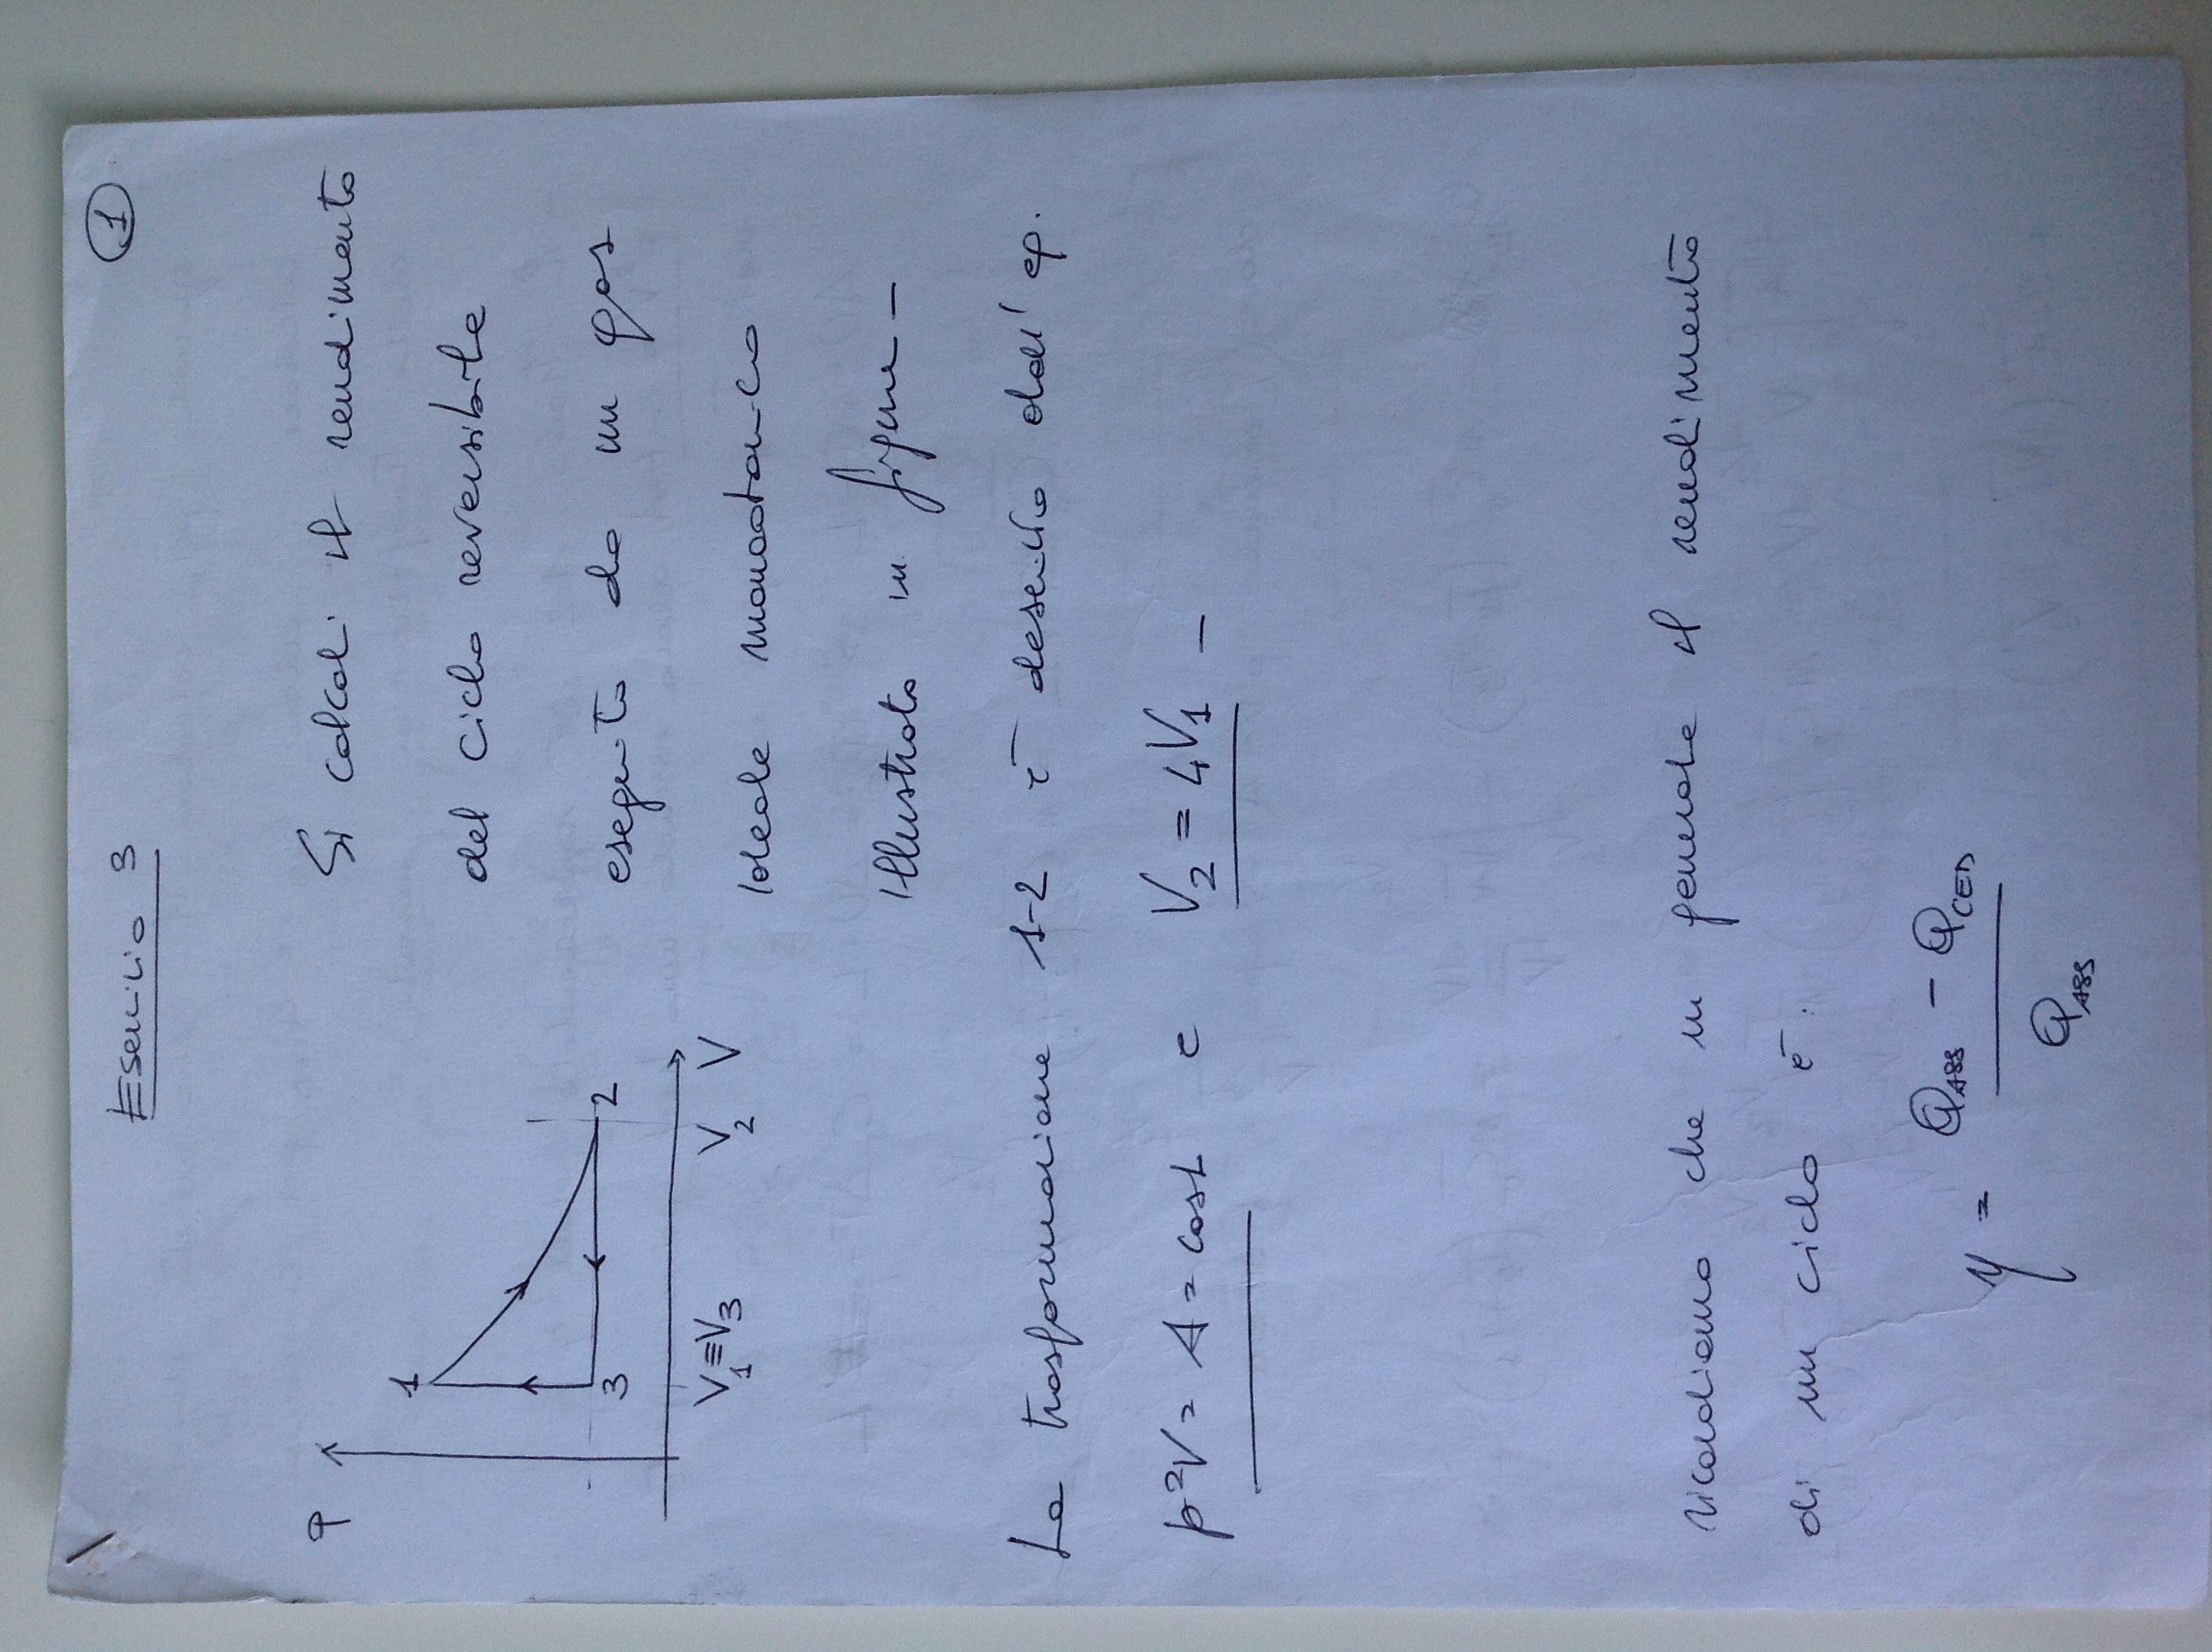 Esercizio 3
1
P
1
3
2
V₁≡V₃
V₂
V
Si calcoli il rendimento
del ciclo reversibile
eseguito da un gas
ideale monoatomico
illustrato in figura –
La trasformazione 1-2 è descritta dall' eq.
p²V = A = cost e V₂ = 4V₁ –
ricordiamo che in generale il rendimento
di un ciclo è:
η = (Q_ASS – Q_CED) / Q_ASS